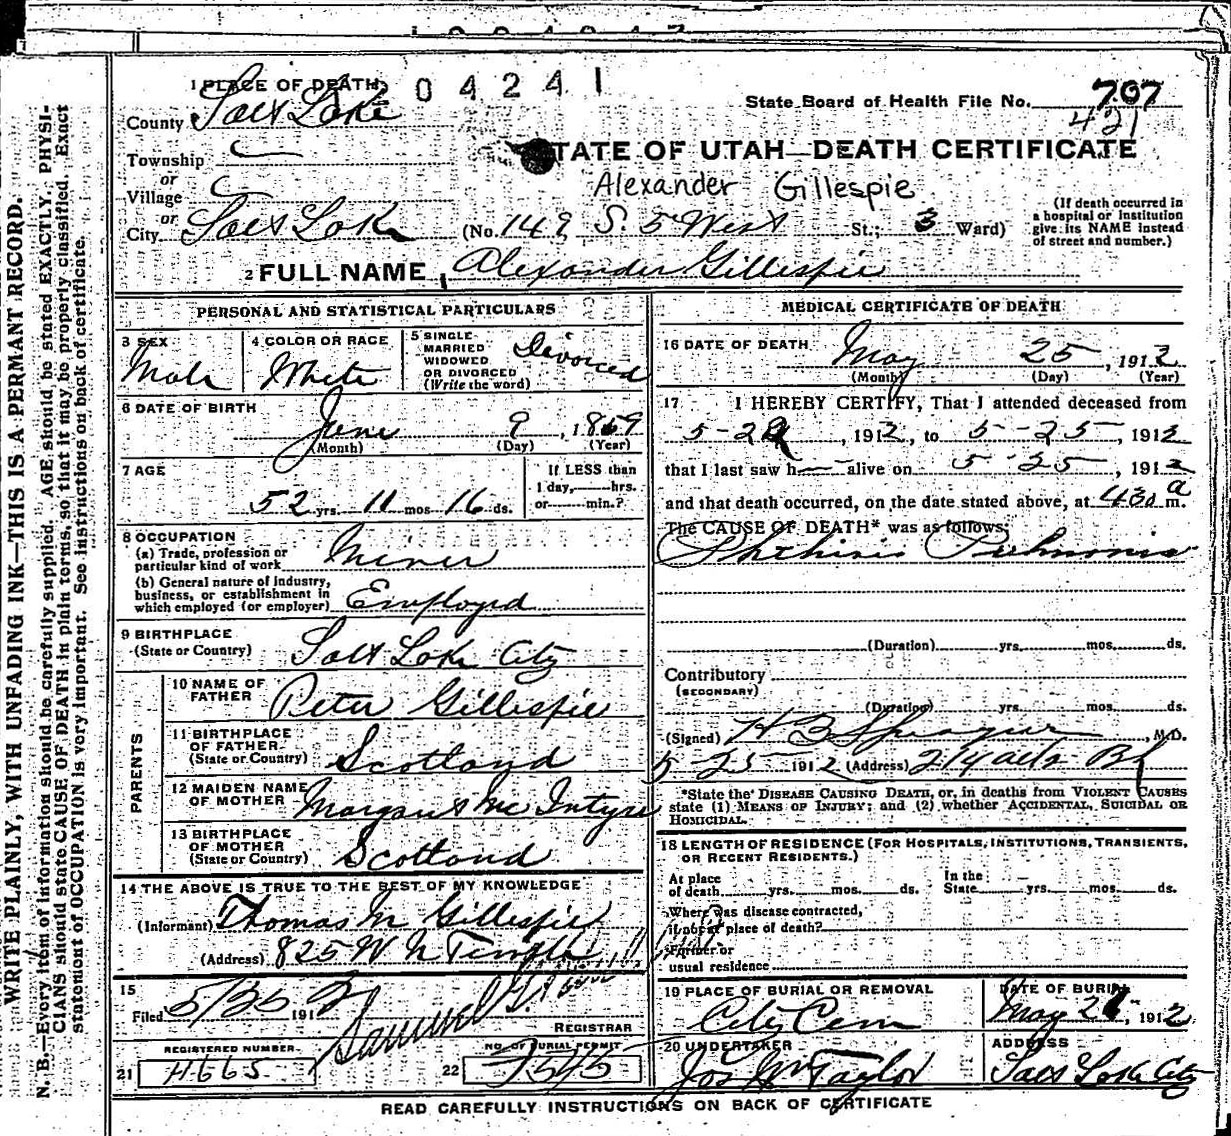 204241
1 PLACE OF DEATH
State Board of Health File No. 707
421
County Salt Lake
STATE OF UTAH—DEATH CERTIFICATE
Township
or
Village
Alexander Gillespie
or
City Salt Lake (No. 149 S. 5 West St.; 3 Ward)
(If death occurred in
a hospital or institution
give its NAME instead
of street and number.)
2 FULL NAME Alexander Gillespie
PERSONAL AND STATISTICAL PARTICULARS
3 SEX
Male
4 COLOR OR RACE
White
5 SINGLE
MARRIED
WIDOWED
OR DIVORCED
(Write the word)
Divorced
6 DATE OF BIRTH
June 9, 1859
(Month) (Day) (Year)
7 AGE
52 yrs. 11 mos. 16 ds.
If LESS than
1 day, hrs.
or min.?
8 OCCUPATION
(a) Trade, profession or
particular kind of work Miner
(b) General nature of industry,
business, or establishment in
which employed (or employer) Employed
9 BIRTHPLACE
(State or Country) Salt Lake City
PARENTS
10 NAME OF
FATHER Peter Gillespie
11 BIRTHPLACE
OF FATHER
(State or Country) Scotland
12 MAIDEN NAME
OF MOTHER Margaret McIntyre
13 BIRTHPLACE
OF MOTHER
(State or Country) Scotland
14 THE ABOVE IS TRUE TO THE BEST OF MY KNOWLEDGE
(Informant) Thomas M Gillespie
(Address) 825 W N Temple
15
Filed 5/25 1912 Samuel G.
REGISTRAR
REGISTERED NUMBER
21 H665
NO. OF BURIAL PERMIT
22 7545
MEDICAL CERTIFICATE OF DEATH
16 DATE OF DEATH
May 25, 1912
(Month) (Day) (Year)
17 I HEREBY CERTIFY, That I attended deceased from
1912, to 5-25, 1912
that I last saw h alive on 5-25, 1912
and that death occurred, on the date stated above, at 430 a m.
The CAUSE OF DEATH* was as follows:
Phthisis Pulmonis
(Duration) yrs. mos. ds.
Contributory
(SECONDARY)
(Duration) yrs. mos. ds.
(Signed) H B Sprague, M.D.
5-25 1912 (Address)
*State the DISEASE CAUSING DEATH, or, in deaths from VIOLENT CAUSES
state (1) MEANS OF INJURY; and (2) whether ACCIDENTAL, SUICIDAL OR
HOMICIDAL.
18 LENGTH OF RESIDENCE (FOR HOSPITALS, INSTITUTIONS, TRANSIENTS,
OR RECENT RESIDENTS.)
At place
of death yrs. mos. ds.
In the
State yrs. mos. ds.
Where was disease contracted,
if not at place of death?
Former or
usual residence
19 PLACE OF BURIAL OR REMOVAL
City Cem
DATE OF BURIAL
May 26, 1912
20 UNDERTAKER
Jos Wm Taylor
ADDRESS
Salt Lake City
READ CAREFULLY INSTRUCTIONS ON BACK OF CERTIFICATE
WRITE PLAINLY, WITH UNFADING INK—THIS IS A PERMANT RECORD.
N. B.—Every item of information should be carefully supplied. AGE should be stated EXACTLY. PHYSI-
CIANS should state CAUSE OF DEATH in plain terms, so that it may be properly classified. Exact
statement of OCCUPATION is very important. See instructions on back of certificate.